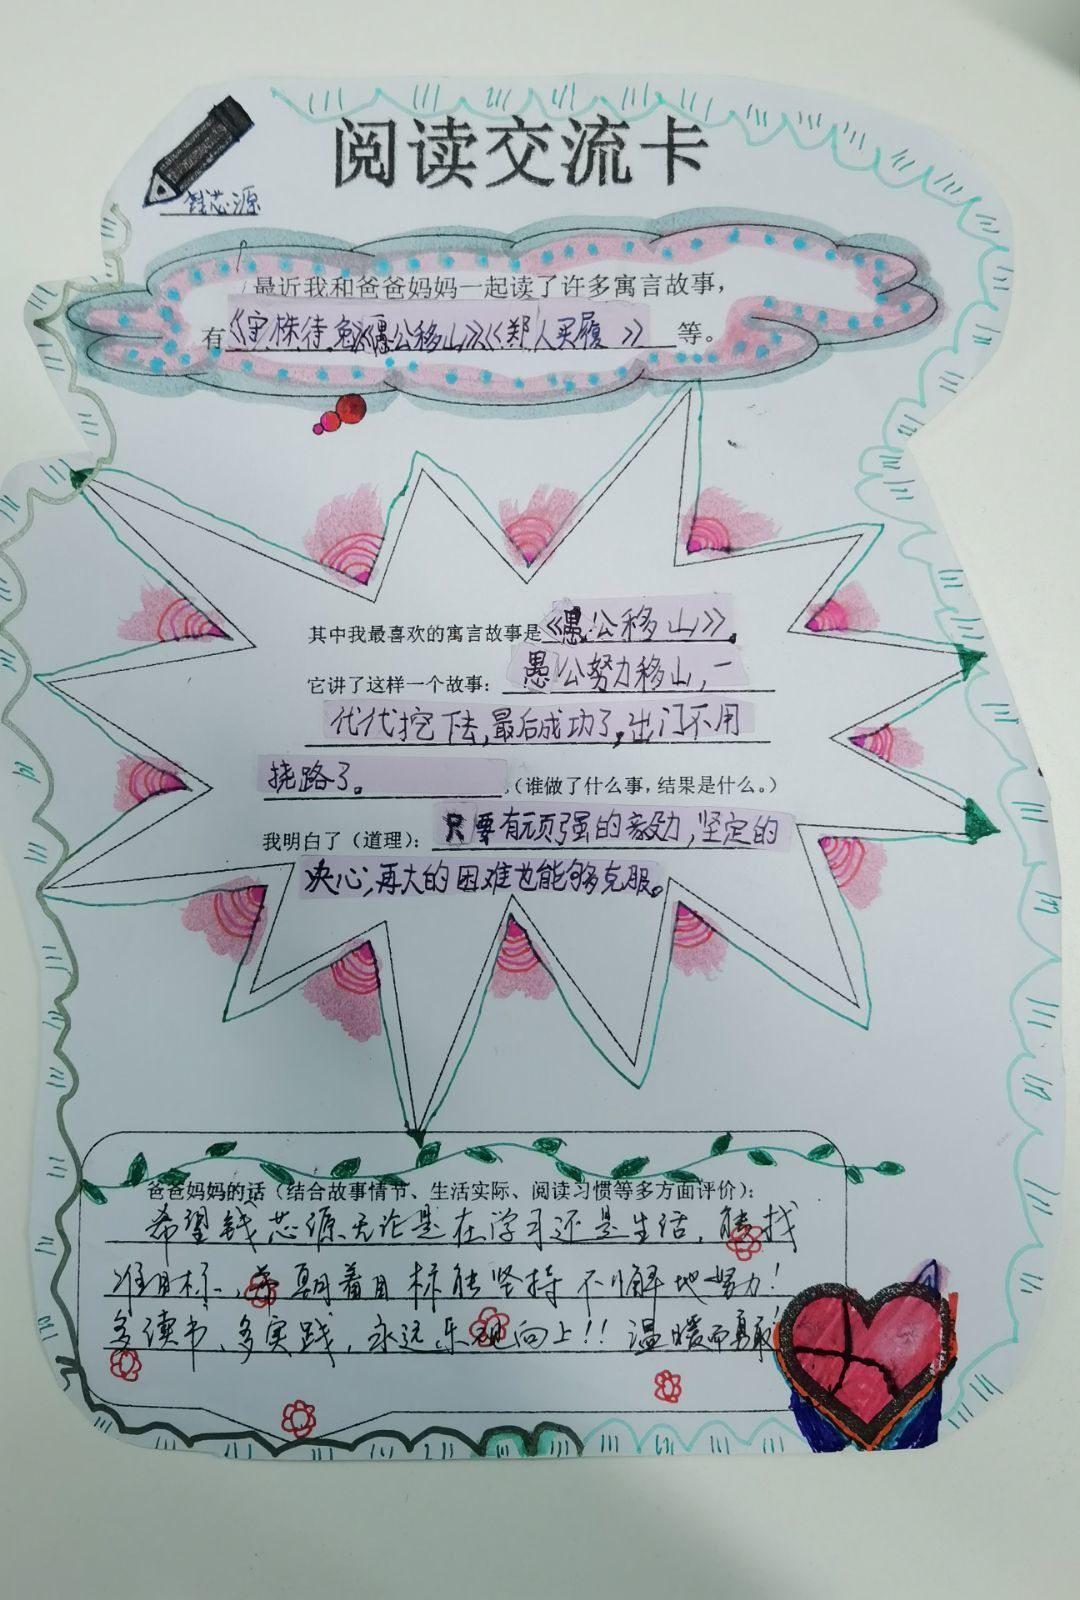 阅读交流卡
钱芯源
最近我和爸爸妈妈一起读了许多寓言故事，
有《守株待兔》《愚公移山》《郑人买履》 等。
其中我最喜欢的寓言故事是《愚公移山》。
它讲了这样一个故事：愚公努力移山，一
代代挖下去，最后成功了。出门不用
挠路了。 （谁做了什么事，结果是什么。）
我明白了（道理）：只要有顽强的毅力，坚定的
决心，再大的困难也能够克服。
爸爸妈妈的话（结合故事情节、生活实际、阅读习惯等多方面评价）：
希望钱芯源无论是在学习还是生活，能找
准目标，朝着目标能坚持不懈地努力！
多读书、多实践，永远乐观向上！！温暖而勇敢！